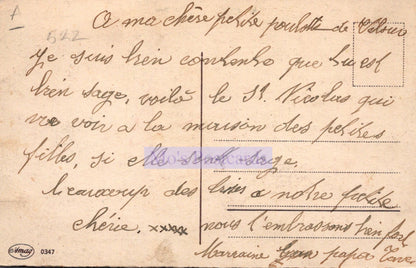 A ma chère petite poulette de Velour
Je suis bien contente que tu est
bien sage, voilà le St. Nicolas qui
va voir a la maison des petites
filles, si elle sont sage.
beaucoup des bises a notre petite
chérie. xxxx nous l'embrassons bien fort
Marraine papa
522
Amag 0347